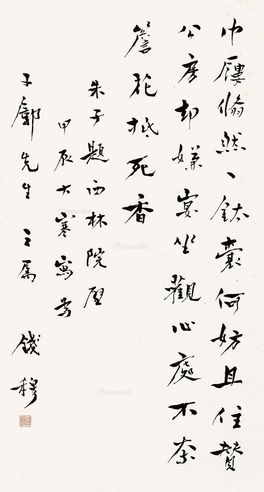 巾屨翛然一鉢囊何妨且住贊
公房却嫌宴坐觀心處不奈
簷花抵死香
朱子題西林院壁
甲辰大寒寫
子先生之屬 錢穆